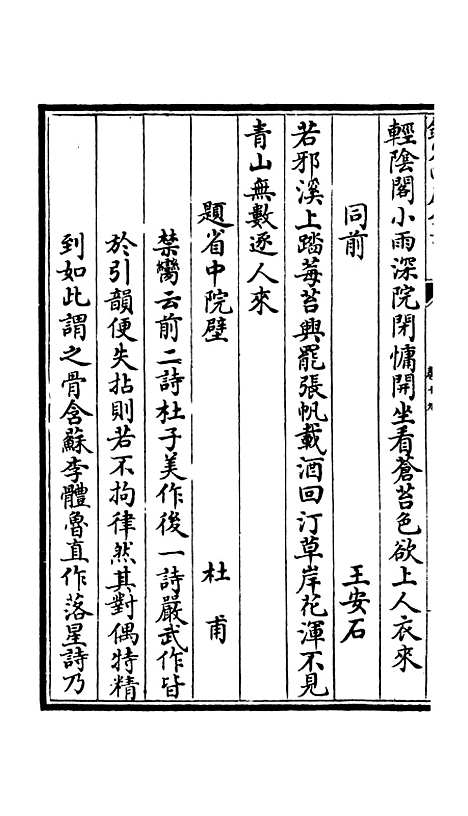 輕陰閣小雨深院閉慵開坐看蒼苔色欲上人衣來
同前　王安石
若邪溪上踏莓苔興罷張帆載酒回汀草岸花渾不見
青山無數逐人來
題省中院壁　杜甫
禁臠云前二詩杜子美作後一詩嚴武作皆
於引韻便失拈則若不拘律然其對偶特精
到如此謂之骨含蘇李體魯直作落星詩乃